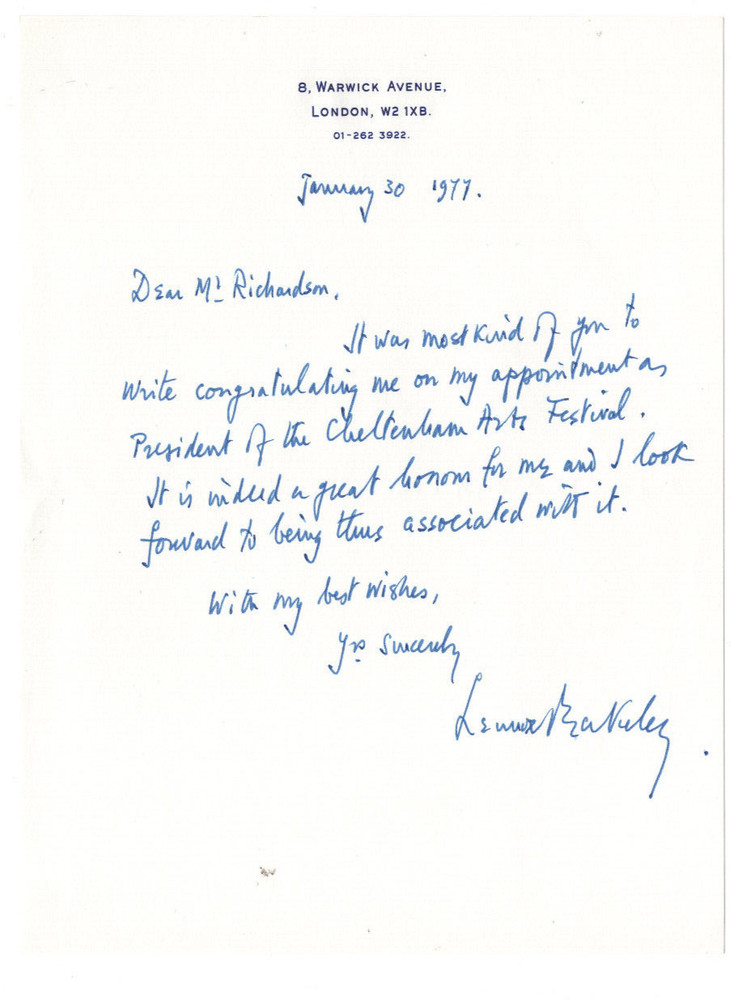 8, WARWICK AVENUE,
LONDON, W2 1XB.
01-262 3922.
January 30 1977.
Dear Mr Richardson,
It was most kind of you to
write congratulating me on my appointment as
President of the Cheltenham Arts Festival.
It is indeed a great honour for me and I look
forward to being thus associated with it.
With my best wishes,
Yrs sincerely
Lennox Berkeley.